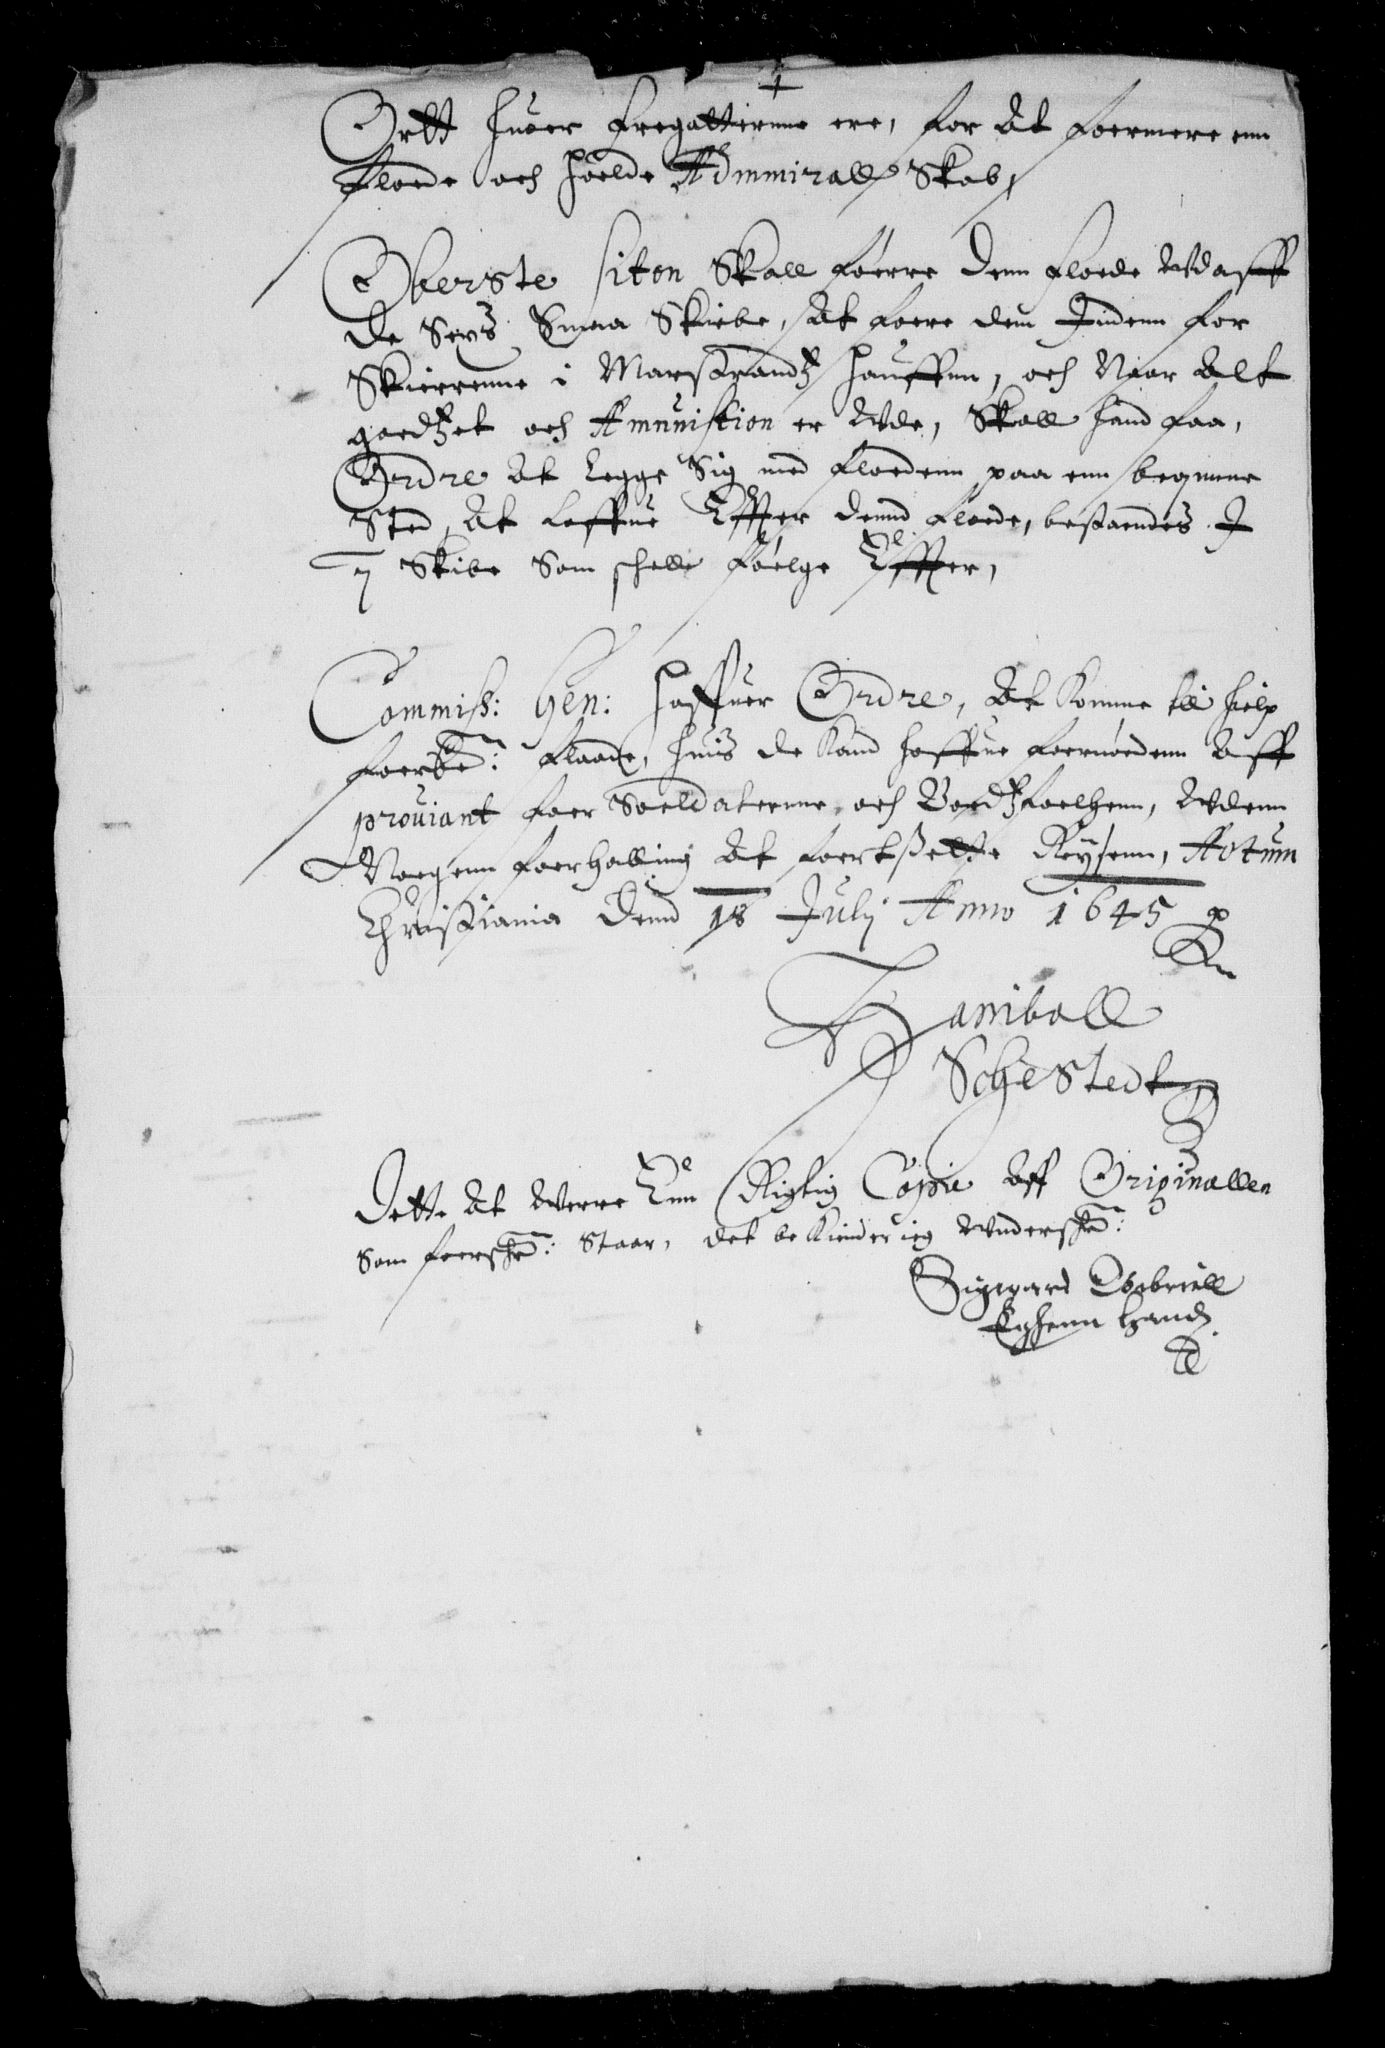 Ortt huoer Fregatterne ere, for At foermere enn
Floede och hoelde Admmirall Skab,
Oberste siton Skall foerre denn Floede Udaff
de Sex Smaa Skiebe, At foere dem Indenn for
Skierrenne i Marstrandtz Hauffen, och Naar Alt
goedtzet och Amunistion er Ude, Skall hand faa,
Ordre At legge Sig med Floedenn paa enn beqmme
Sted, At løffue Effter dennd Floede, bestaendes I
7 Skibe Som schulle følge Effter,
Commiss: Gen: Haffuer Ordre, At Komme till hielp
foerbe: Flaade, huis de Kand haffue foernødenn Aff
proviant foer Soeldaterne, och Bordtzfoelhenn, Udenn
Noegenn foerhalling At foertsette Reysenn, Actum
Christiania dend 18 Julij Anno 1645
Haniball
Sehestedt
Dette At Were Enn Rigtig Copie Aff Originallen
Som foerschr: Staar, det beKiender ieg Underschr:
Sigvard Gabriell
Eghenn Hand